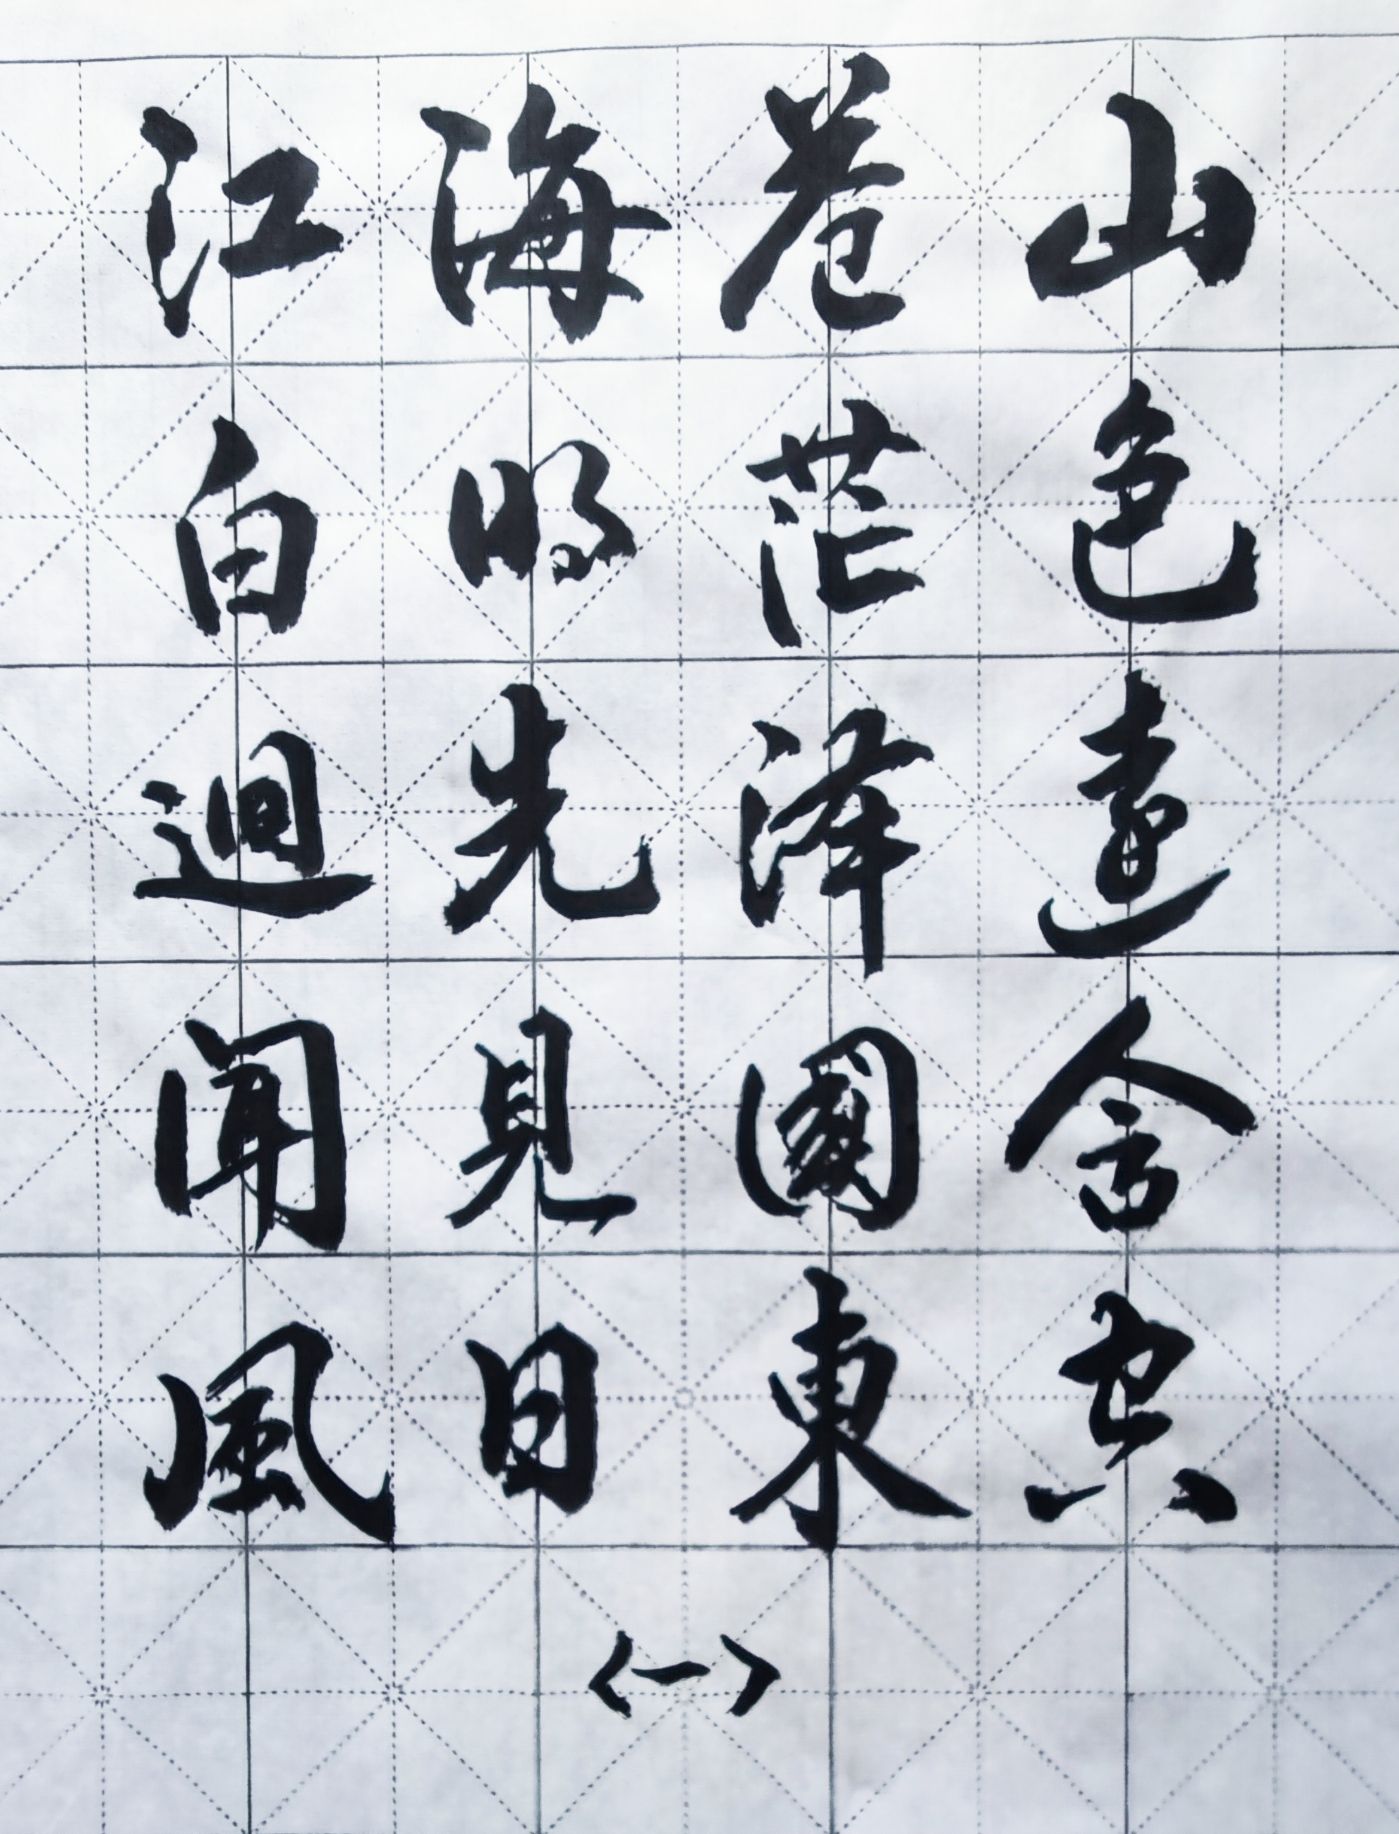 山色遠含空
蒼茫澤國東
海明先見日
江白迥聞風
〈一〉